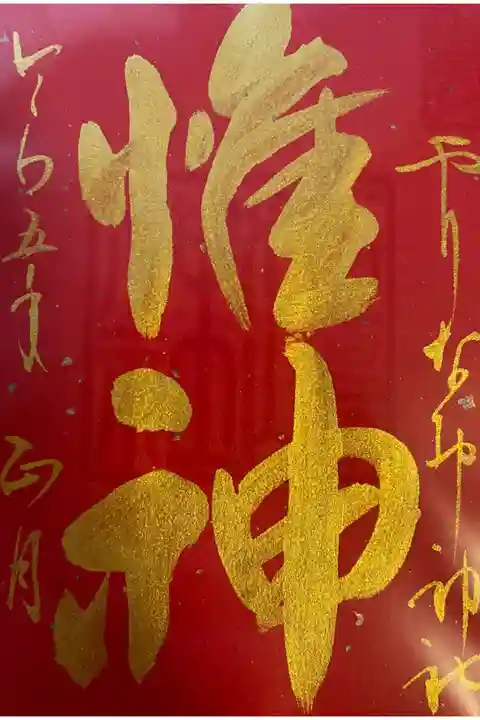 神社
惟神
令和五年 正月